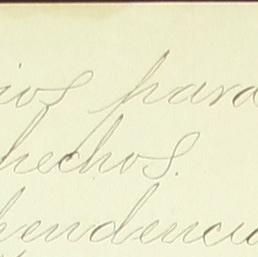 ios para
hechos.
pendencia